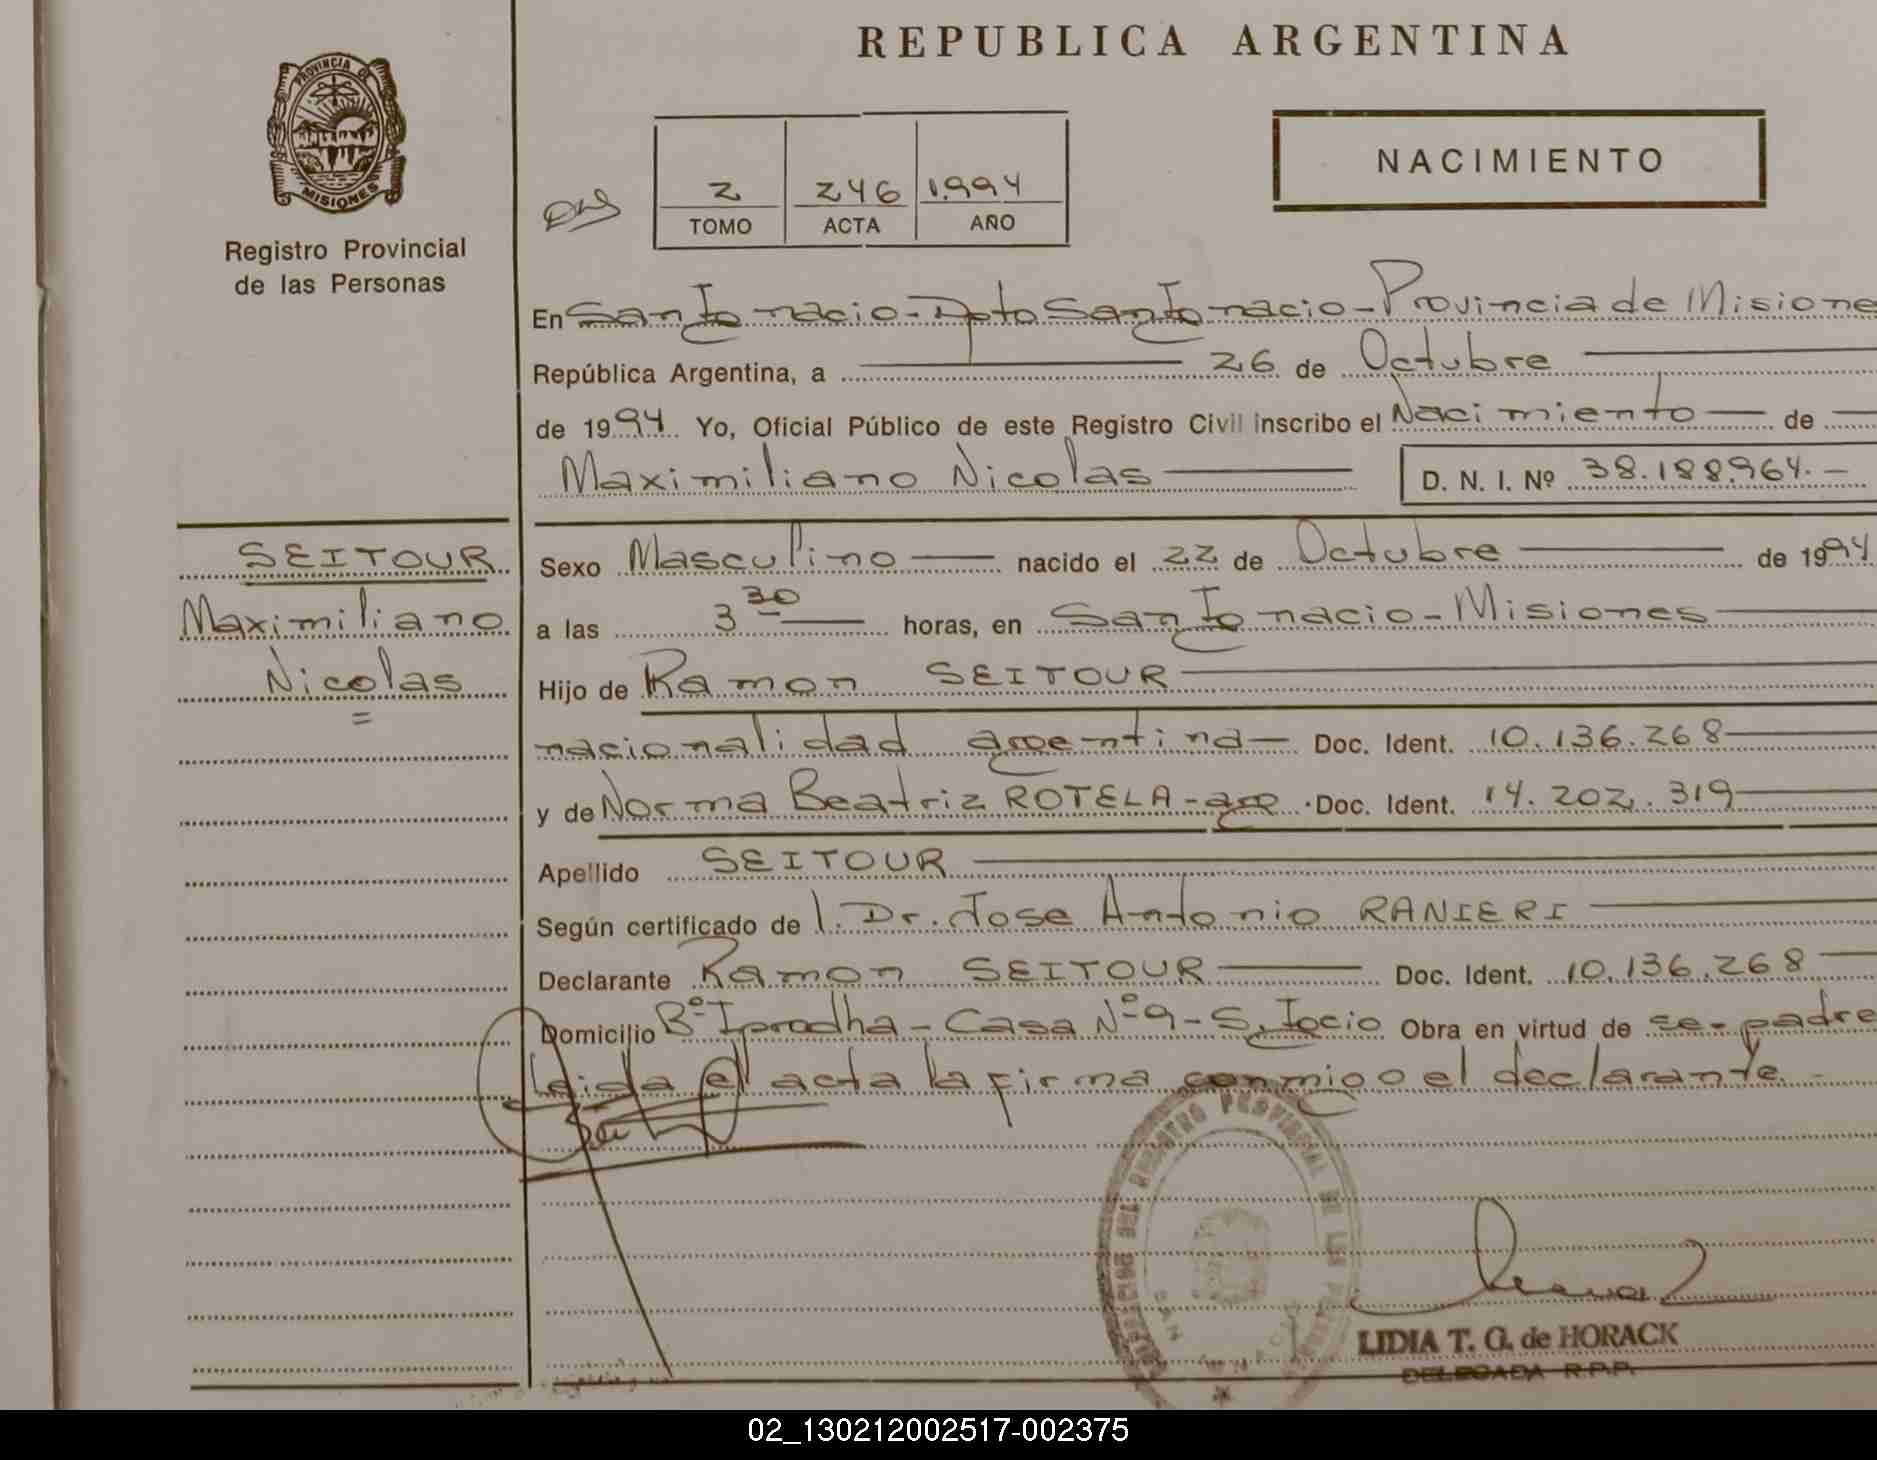 REPUBLICA ARGENTINA
PROVINCIA DE
MISIONES
Registro Provincial
de las Personas
NACIMIENTO
2 246 1.994
TOMO ACTA AÑO
En San Ignacio - Dpto San Ignacio - Provincia de Misione
República Argentina, a 26 de Octubre
de 1994 Yo, Oficial Público de este Registro Civil inscribo el Nacimiento de
Maximiliano Nicolas D. N. I. Nº 38.188.964.-
SEITOUR
Maximiliano
Nicolas
Sexo Masculino nacido el 22 de Octubre de 1994
a las 3 30 horas, en San Ignacio - Misiones
Hijo de Ramon SEITOUR
nacionalidad argentina Doc. Ident. 10.136.268
y de Norma Beatriz ROTELA - arg. Doc. Ident. 14.202.319
Apellido SEITOUR
Según certificado de l. Dr. Jose Antonio RANIERI
Declarante Ramon SEITOUR Doc. Ident. 10.136.268
Domicilio Bº Iprodha - Casa Nº 9 - S. Igcio Obra en virtud de se - padre
Leida el acta la firma conmigo el declarante.-
REGISTRO PROVINCIAL DE LAS
SAN IGNACIO
LIDIA T. G. de HORACK
DELEGADA R.P.P.
02_130212002517-002375